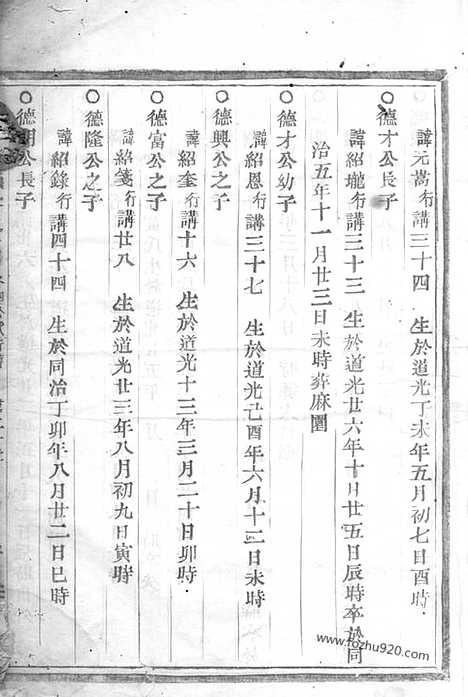 諱元嵩行講三十四　生於道光丁未年五月初七日酉時
○德才公長子
諱紹壠行講三十三　生於道光廿六年十月廿五日辰時卒於同
治五年十一月廿三日未時葬麻園
○德才公幼子
諱紹恩行講三十七　生於道光己酉年六月十二日未時
○德興公之子
諱紹奎行講十六　生於道光十三年三月二十日卯時
○德富公之子
諱紹箋行講廿八　生於道光廿三年八月初九日寅時
○德隆公之子
諱紹錄行講四十四　生於同治丁卯年八月廿二日巳時
○德明公長子
www.fozhu920.com